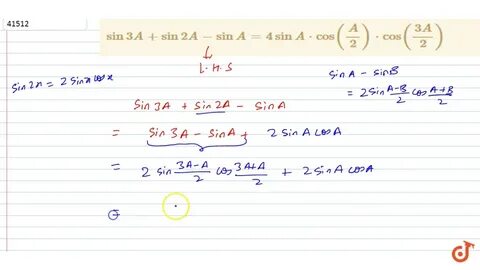 41512
sin 3A + sin 2A − sin A = 4 sin A · cos(A/2) · cos(3A/2)
L.H.S
sin2x = 2sinx cosx
sinA - sinB
= 2sin (A-B)/2 cos (A+B)/2
sin3A + sin2A - sinA
= sin3A - sinA + 2sinA cosA
= 2 sin (3A-A)/2 cos (3A+A)/2 + 2sinA cosA
=
doubtnut